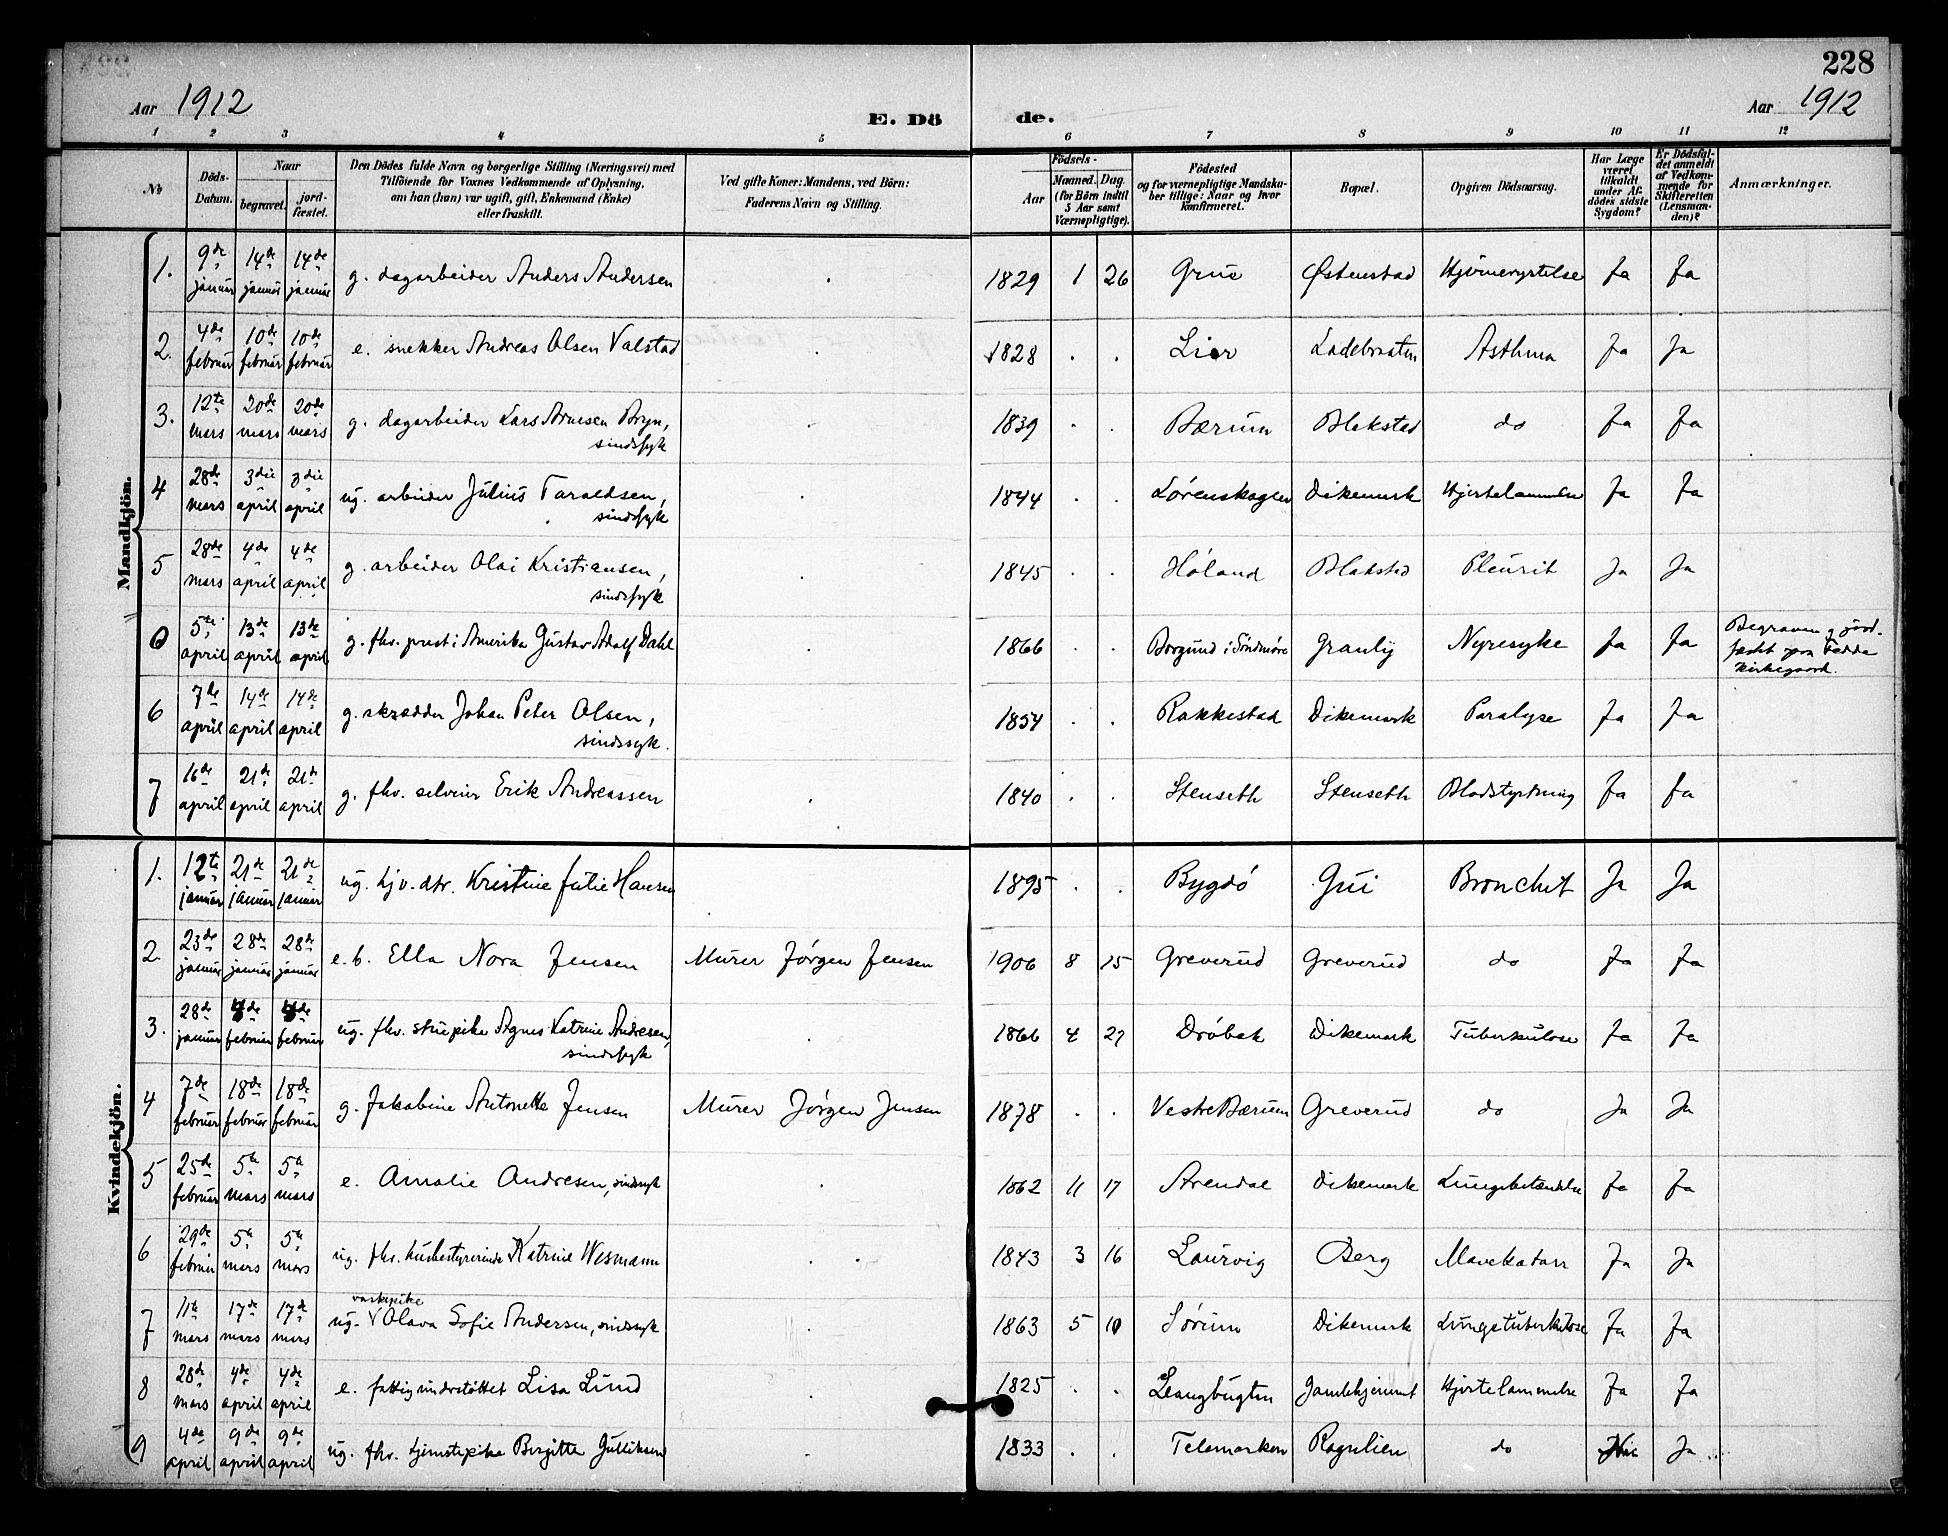 228
Aar 1912
E. Dö
de.
Aar 1912
1 2 3 4 5 6 7 8 9 10 11 12
No
Döds-
Datum.
Naar
begravet.
jord-
fæstet.
Den Dödes fulde Navn og borgerlige Stilling (Næringsvei) med
Tilföiende for Voxnes Vedkommende af Oplysning,
om han (hun) var ugift, gift, Enkemand (Enke)
eller fraskilt.
Ved gifte Koner: Mandens, ved Börn:
Faderens Navn og Stilling.
Födsels-
Aar
Maaned.
Dag.
(for Börn indtil
5 Aar samt
Værnepligtige).
Födested
og for værnepligtige Mandska-
ber tillige: Naar og hvor
konfirmeret.
Bopæl.
Opgiven Dödsaarsag.
Har Læge
været
tilkaldt
under Af-
dödes sidste
Sygdom?
Er Dödsfal-
det anmeldt
af Vedkom-
mende for
Skifteretten
(Lensman-
den)?
Anmærkninger.
Mandkjön.
1. 9de januar 14de januar 14de januar g. dagarbeider Anders Andersen . 1829 1 26 Grue Østenstad Hjernerystelse Ja Ja
2. 4de februar 10de februar 10de februar e. snekker Andreas Olsen Valstad . 1828 . . Lier Ladebraaten Asthma Ja Ja
3. 12te mars 20de mars 20de mars g. dagarbeider Lars Arnesen Bryn, . 1839 . . Bærum Blakstad do Ja Ja
sindssyk
4 28de mars 3die april 3die april ug. arbeider Julius Taraldsen, . 1844 . . Lørenskogen Dikemark Hjertelammelse Ja Ja
sindssyk
5 28de mars 4de april 4de april g. arbeider Olai Kristiansen, . 1845 . . Høland Blakstad Pleurit Ja Ja
sindssyk
0 5te april 13de april 13de april g. fhv. prest i Amerika Gustav Adolf Dahl . 1866 . . Borgund i Söndmøre Granly Nyresyke Ja Ja Begraven og jord-
fæstet paa
kirkegaard.
6 7de april 14de april 14de april g. skrædder Johan Peter Olsen, . 1854 . . Rakkestad Dikemark Paralyse Ja Ja
sindssyk.
7 16de april 21de april 21de april g. fhv. selveier Erik Andreassen . 1840 . . Stenseth Stenseth Blodstyrtning Ja Ja
Kvindekjön.
1. 12te januar 21de januar 21de januar ug. hjv. dtr. Kristine Julie Hansen 1895 . . Bygdö Gui Bronchit Ja Ja
2. 23de januar 28de januar 28de januar e. b. Ella Nora Jensen Murer Jörgen Jensen 1906 8 15 Greverud Greverud do Ja Ja
3. 28de januar 4de februar 4de februar ug. fhv. stuepike Agnes Katrine Andresen, . 1866 4 27 Drøbak Dikemark Tuberkulose Ja Ja
sindssyk
4 7de februar 18de februar 18de februar g. Jakobine Antonette Jensen Murer Jørgen Jensen 1878 . . Vestre Bærum Greverud do Ja Ja
5 25de februar 5te mars 5te mars e. Amalie Andresen, sindssyk . 1862 11 17 Arendal Dikemark Lungebetændelse Ja Ja
6 29de februar 5te mars 5te mars ug. fhv. husbestyrerinde Katrine Wesmann . 1843 3 16 Laurvig Berg Mavekatarr Ja Ja
vaskepike
7 11te mars 17de mars 17de mars ug. Olava Sofie Andersen, sindssyk . 1863 5 10 Sørum Dikemark Lungetuberkulose Ja Ja
8 28de mars 4de april 4de april e. fattigunderstøttet Lisa Lund . 1825 . . Leangbugten Gamlehjemmet Hjertelammelse Ja Ja
9 4de april 9de april 9de april ug. fhv. tjenestepike Birgitte Gulliksen . 1833 . . Telemarken do Nei Ja